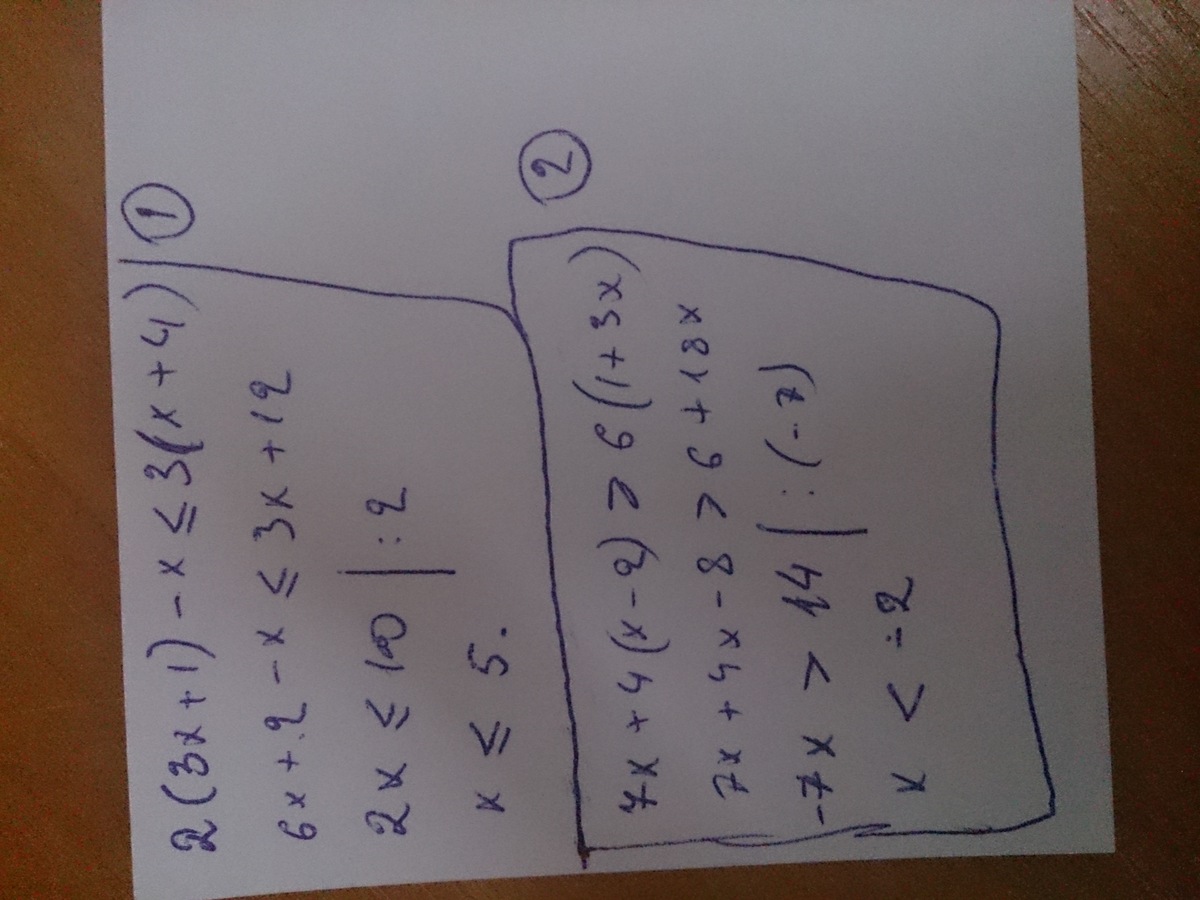 2(3x+1)-x≤3(x+4) 1
6x+2-x≤3x+12
2x≤10 |:2
x≤5.
2
7x+4(x-2)>6(1+3x)
7x+4x-8>6+18x
-7x>14 |:(-7)
x<-2